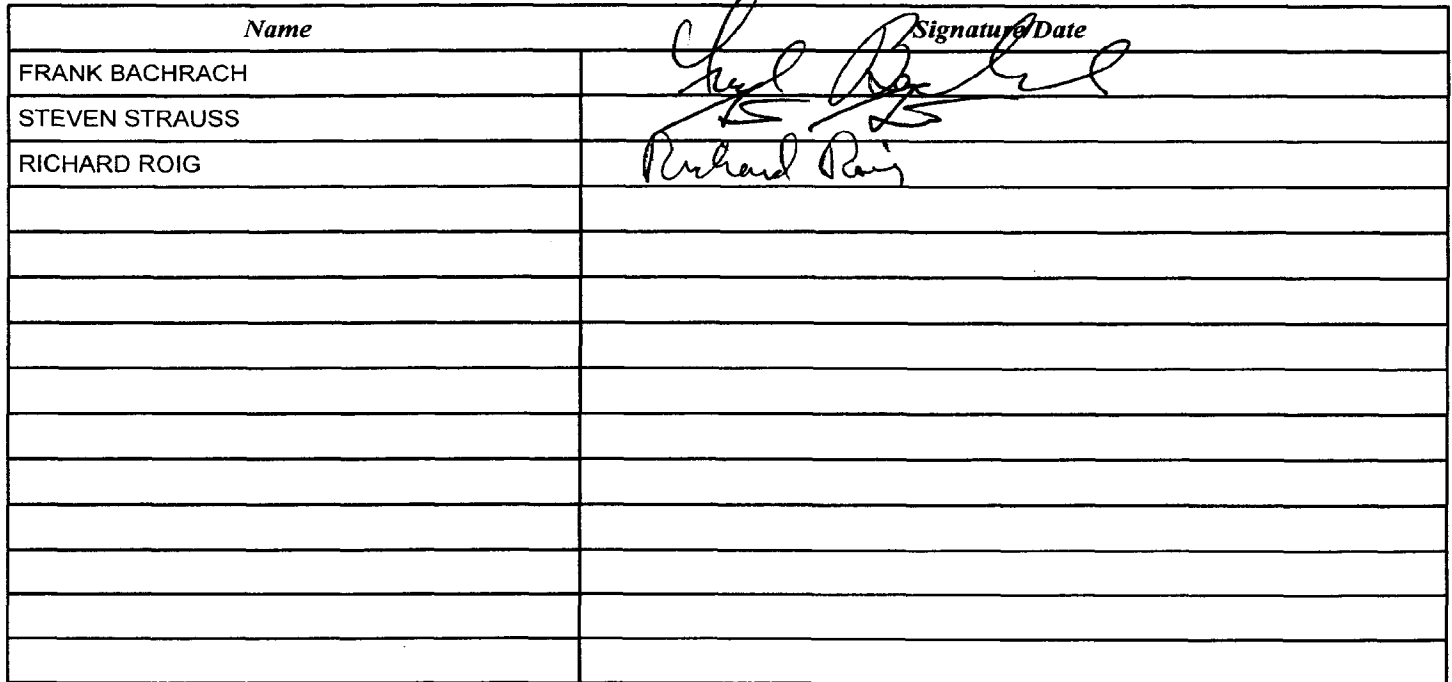 Name Signature/Date
FRANK BACHRACH
STEVEN STRAUSS
RICHARD ROIG Richard Roig